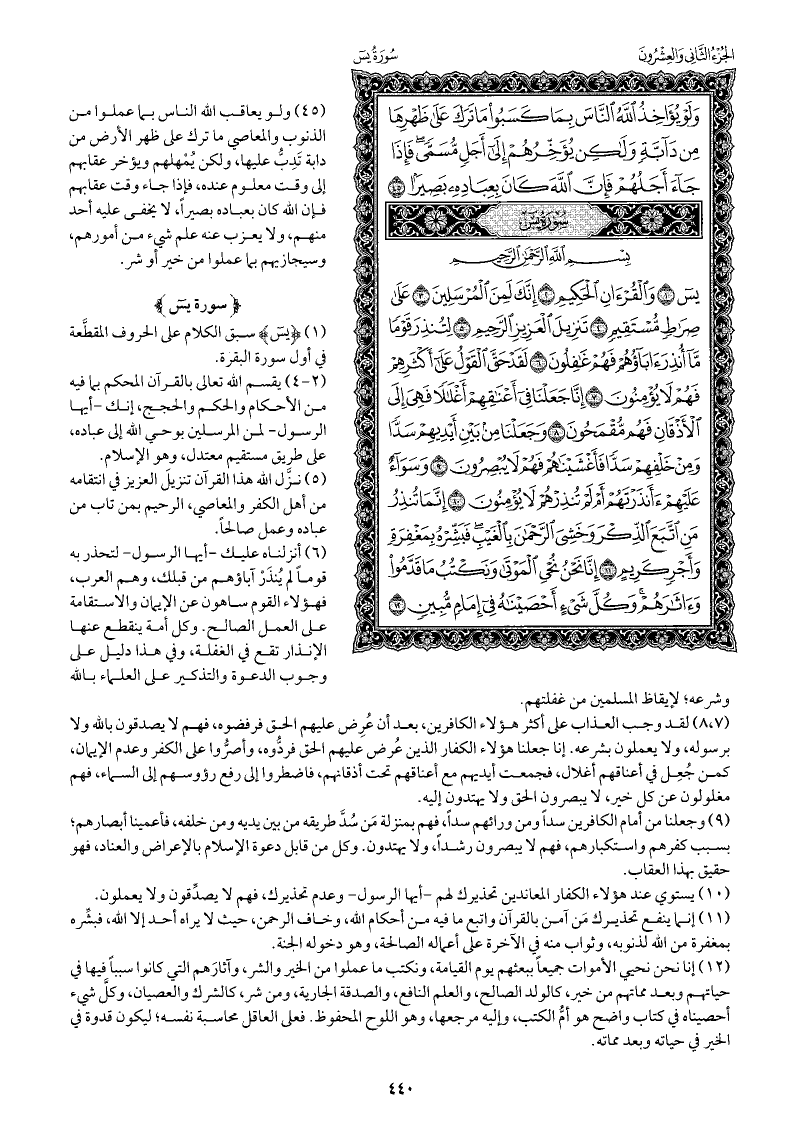 الجزء الثاني والعشرون
سورة يس
وَلَوْ يُؤَاخِذُ ٱللَّهُ ٱلنَّاسَ بِمَا كَسَبُوا۟ مَا تَرَكَ عَلَىٰ ظَهْرِهَا
مِن دَآبَّةٍ وَلَـٰكِن يُؤَخِّرُهُمْ إِلَىٰٓ أَجَلٍ مُّسَمًّى ۖ فَإِذَا
جَآءَ أَجَلُهُمْ فَإِنَّ ٱللَّهَ كَانَ بِعِبَادِهِۦ بَصِيرًۢا ٤٥
سورة يس
بِسْمِ ٱللَّهِ ٱلرَّحْمَـٰنِ ٱلرَّحِيمِ
يسٓ ١ وَٱلْقُرْءَانِ ٱلْحَكِيمِ ٢ إِنَّكَ لَمِنَ ٱلْمُرْسَلِينَ ٣ عَلَىٰ
صِرَٰطٍ مُّسْتَقِيمٍ ٤ تَنزِيلَ ٱلْعَزِيزِ ٱلرَّحِيمِ ٥ لِتُنذِرَ قَوْمًا
مَّآ أُنذِرَ ءَابَآؤُهُمْ فَهُمْ غَـٰفِلُونَ ٦ لَقَدْ حَقَّ ٱلْقَوْلُ عَلَىٰٓ أَكْثَرِهِمْ
فَهُمْ لَا يُؤْمِنُونَ ٧ إِنَّا جَعَلْنَا فِىٓ أَعْنَـٰقِهِمْ أَغْلَـٰلًا فَهِىَ إِلَى
ٱلْأَذْقَانِ فَهُم مُّقْمَحُونَ ٨ وَجَعَلْنَا مِنۢ بَيْنِ أَيْدِيهِمْ سَدًّا
وَمِنْ خَلْفِهِمْ سَدًّا فَأَغْشَيْنَـٰهُمْ فَهُمْ لَا يُبْصِرُونَ ٩ وَسَوَآءٌ
عَلَيْهِمْ ءَأَنذَرْتَهُمْ أَمْ لَمْ تُنذِرْهُمْ لَا يُؤْمِنُونَ ١٠ إِنَّمَا تُنذِرُ
مَنِ ٱتَّبَعَ ٱلذِّكْرَ وَخَشِىَ ٱلرَّحْمَـٰنَ بِٱلْغَيْبِ ۖ فَبَشِّرْهُ بِمَغْفِرَةٍ
وَأَجْرٍ كَرِيمٍ ١١ إِنَّا نَحْنُ نُحْىِ ٱلْمَوْتَىٰ وَنَكْتُبُ مَا قَدَّمُوا۟
وَءَاثَـٰرَهُمْ ۚ وَكُلَّ شَىْءٍ أَحْصَيْنَـٰهُ فِىٓ إِمَامٍ مُّبِينٍ ١٢
(٤٥) ولو يعاقب الله الناس بما عملوا من
الذنوب والمعاصي ما ترك على ظهر الأرض من
دابة تَدِبُّ عليها، ولكن يُمْهلهم ويؤخر عقابهم
إلى وقت معلوم عنده، فإذا جاء وقت عقابهم
فإن الله كان بعباده بصيراً، لا يخفى عليه أحد
منهم، ولا يعزب عنه علم شيء من أمورهم،
وسيجازيهم بما عملوا من خير أو شر.
﴿سورة يس﴾
(١) ﴿يسٓ﴾ سبق الكلام على الحروف المقطَّعة
في أول سورة البقرة.
(٢-٤) يقسم الله تعالى بالقرآن المحكم بما فيه
من الأحكام والحكم والحجج، إنك -أيها
الرسول- لمن المرسلين بوحي الله إلى عباده،
على طريق مستقيم معتدل، وهو الإسلام.
(٥) نزَّل الله هذا القرآن تنزيلَ العزيز في انتقامه
من أهل الكفر والمعاصي، الرحيم بمن تاب من
عباده وعمل صالحاً.
(٦) أنزلناه عليك -أيها الرسول- لتحذر به
قوماً لم يُنذَرْ آباؤهم من قبلك، وهم العرب،
فهؤلاء القوم ساهون عن الإيمان والاستقامة
على العمل الصالح. وكل أمة ينقطع عنها
الإنذار تقع في الغفلة، وفي هذا دليل على
وجوب الدعوة والتذكير على العلماء بالله
وشرعه؛ لإيقاظ المسلمين من غفلتهم.
(٨،٧) لقد وجب العذاب على أكثر هؤلاء الكافرين، بعد أن عُرِض عليهم الحق فرفضوه، فهم لا يصدقون بالله ولا
برسوله، ولا يعملون بشرعه. إنا جعلنا هؤلاء الكفار الذين عُرض عليهم الحق فردُّوه، وأصرُّوا على الكفر وعدم الإيمان،
كمن جُعِل في أعناقهم أغلال، فجمعت أيديهم مع أعناقهم تحت أذقانهم، فاضطروا إلى رفع رؤوسهم إلى السماء، فهم
مغلولون عن كل خير، لا يبصرون الحق ولا يهتدون إليه.
(٩) وجعلنا من أمام الكافرين سداً ومن ورائهم سداً، فهم بمنزلة مَن سُدَّ طريقه من بين يديه ومن خلفه، فأعمينا أبصارهم؛
بسبب كفرهم واستكبارهم، فهم لا يبصرون رشداً، ولا يهتدون. وكل من قابل دعوة الإسلام بالإعراض والعناد، فهو
حقيق بهذا العقاب.
(١٠) يستوي عند هؤلاء الكفار المعاندين تحذيرك لهم -أيها الرسول- وعدم تحذيرك، فهم لا يصدِّقون ولا يعملون.
(١١) إنما ينفع تحذيرك مَن آمن بالقرآن واتبع ما فيه من أحكام الله، وخاف الرحمن، حيث لا يراه أحد إلا الله، فبشِّره
بمغفرة من الله لذنوبه، وثواب منه في الآخرة على أعماله الصالحة، وهو دخوله الجنة.
(١٢) إنا نحن نحيي الأموات جميعاً ببعثهم يوم القيامة، ونكتب ما عملوا من الخير والشر، وآثارَهم التي كانوا سبباً فيها في
حياتهم وبعد مماتهم من خير، كالولد الصالح، والعلم النافع، والصدقة الجارية، ومن شر، كالشرك والعصيان، وكلَّ شيء
أحصيناه في كتاب واضح هو أمُّ الكتب، وإليه مرجعها، وهو اللوح المحفوظ. فعلى العاقل محاسبة نفسه؛ ليكون قدوة في
الخير في حياته وبعد مماته.
٤٤٠